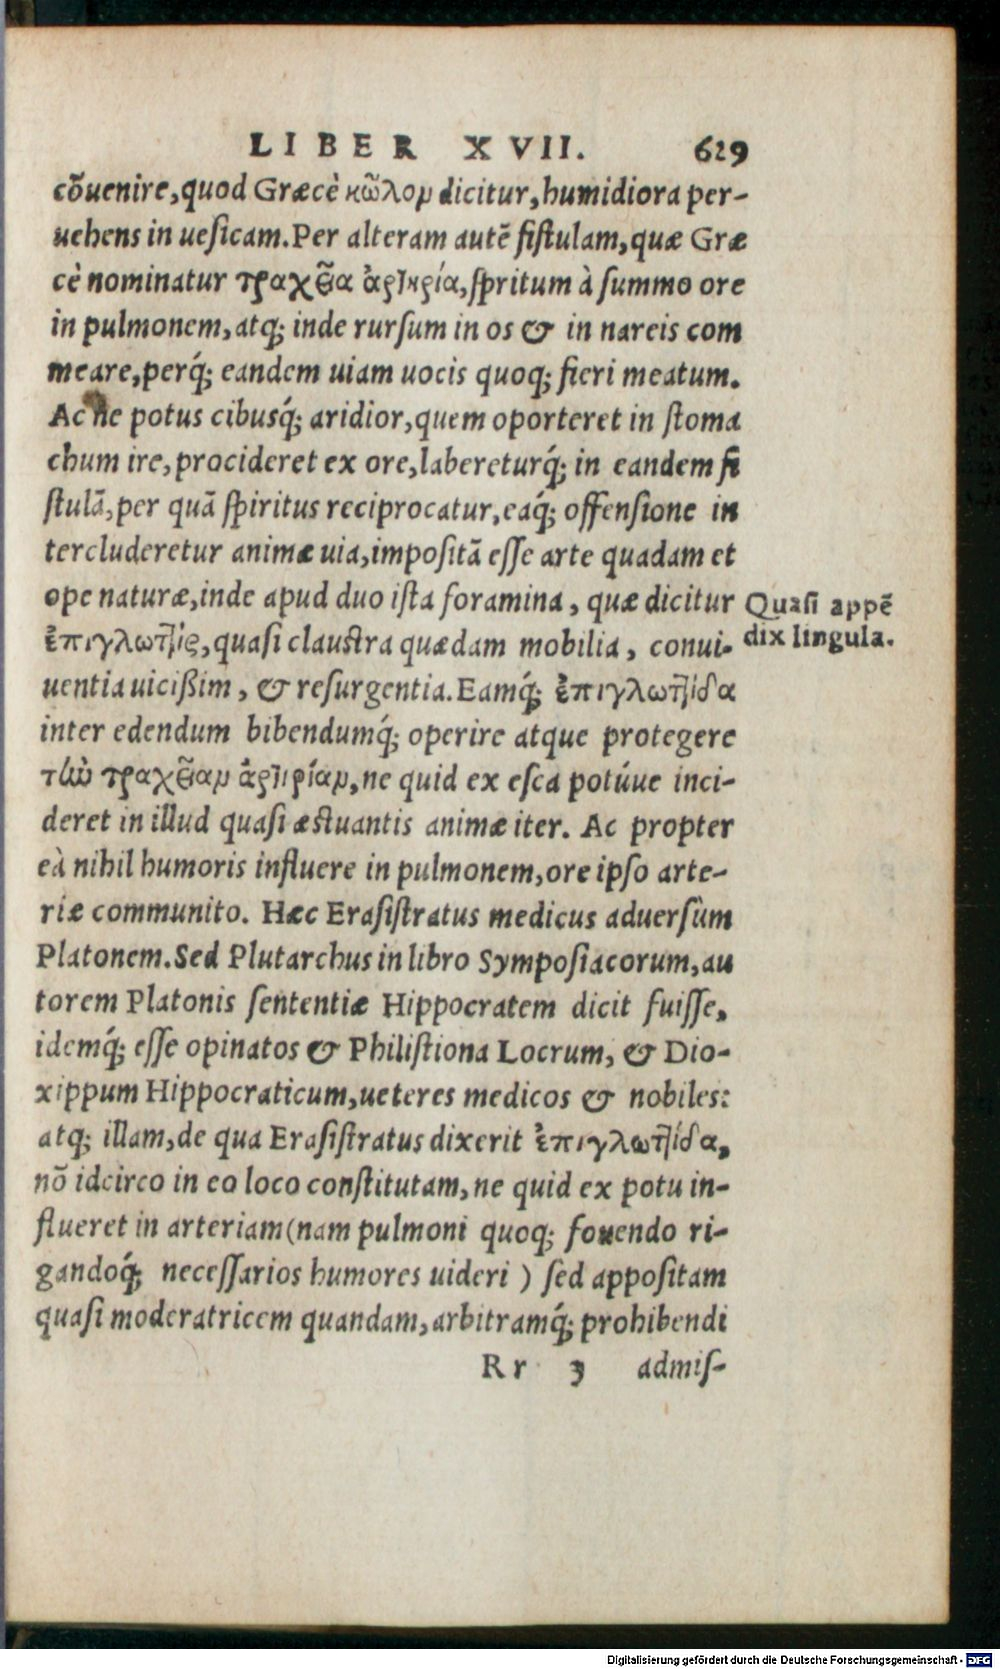 LIBER XVII. 629
cõuenire,quod Græcè κῶλομ dicitur,humidiora per-
uehens in uesicam.Per alteram autẽ fistulam,quæ Græ
cè nominatur τραχεῖα ἀρτηρία,spritum à summo ore
in pulmonem,atq; inde rursum in os & in nareis com
meare,perq́; eandem uiam uocis quoq; fieri meatum.
Ac ne potus cibusq́; aridior,quem oporteret in stoma
chum ire,procideret ex ore,labereturq́; in eandem fi
stulã,per quã spiritus reciprocatur,eaq́; offensione in
tercluderetur animæ uia,impositã esse arte quadam et
ope naturæ,inde apud duo ista foramina, quæ dicitur
Quasi appẽ
dix lingula.
ἐπιγλωτἰς,quasi claustra quædam mobilia, conui-
uentia uicißim, & resurgentia.Eamq́; ἐπιγλωτίδα
inter edendum bibendumq́; operire atque protegere
τὼ τραχεῖαμ ἀρτηρίαμ,ne quid ex esca potúue inci-
deret in illud quasi æstuantis animæ iter. Ac propter
eà nihil humoris influere in pulmonem,ore ipso arte-
riæ communito. Hæc Erasistratus medicus aduersùm
Platonem.Sed Plutarchus in libro Symposiacorum,au
torem Platonis sententiæ Hippocratem dicit fuisse,
idemq́; esse opinatos & Philistiona Locrum, & Dio-
xippum Hippocraticum,ueteres medicos & nobiles:
atq; illam,de qua Erasistratus dixerit ἐπιγλωτίδα,
nõ idcirco in eo loco constitutam,ne quid ex potu in-
flueret in arteriam(nam pulmoni quoq; fouendo ri-
gandoq́; necessarios humores uideri ) sed appositam
quasi moderatricem quandam,arbitramq́; prohibendi
Rr 3 admis-
Digitalisierung gefördert durch die Deutsche Forschungsgemeinschaft - DFG